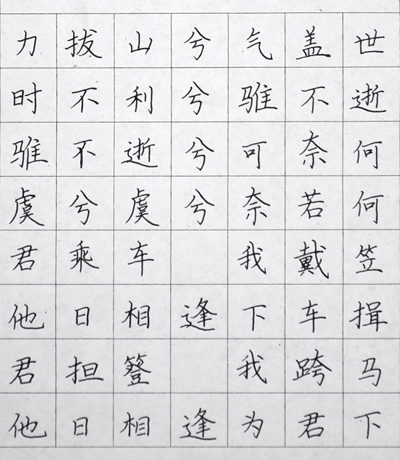 力拔山兮气盖世
时不利兮骓不逝
骓不逝兮可奈何
虞兮虞兮奈若何
君乘车 我戴笠
他日相逢下车揖
君担簦 我跨马
他日相逢为君下